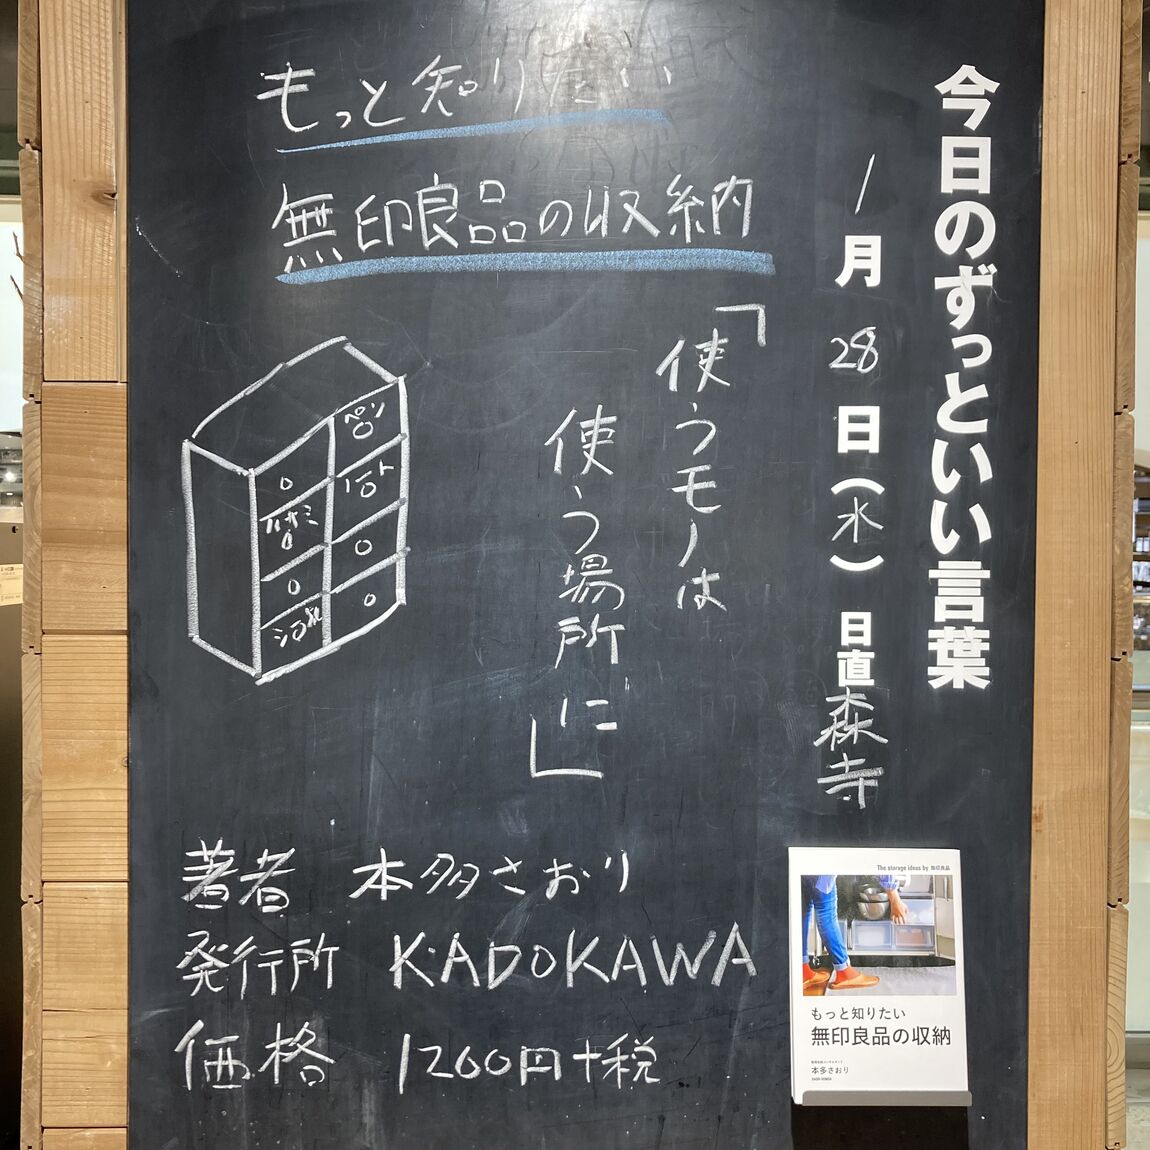 今日のずっといい言葉
1月28日(水) 日直 森寺
もっと知りたい
無印良品の収納
「使うモノは
使う場所に」
ペン
ノート
ハサミ
著者 本多さおり
発行所 KADOKAWA
価格 1200円+税
The storage ideas by 無印良品
もっと知りたい
無印良品の収納
本多さおり